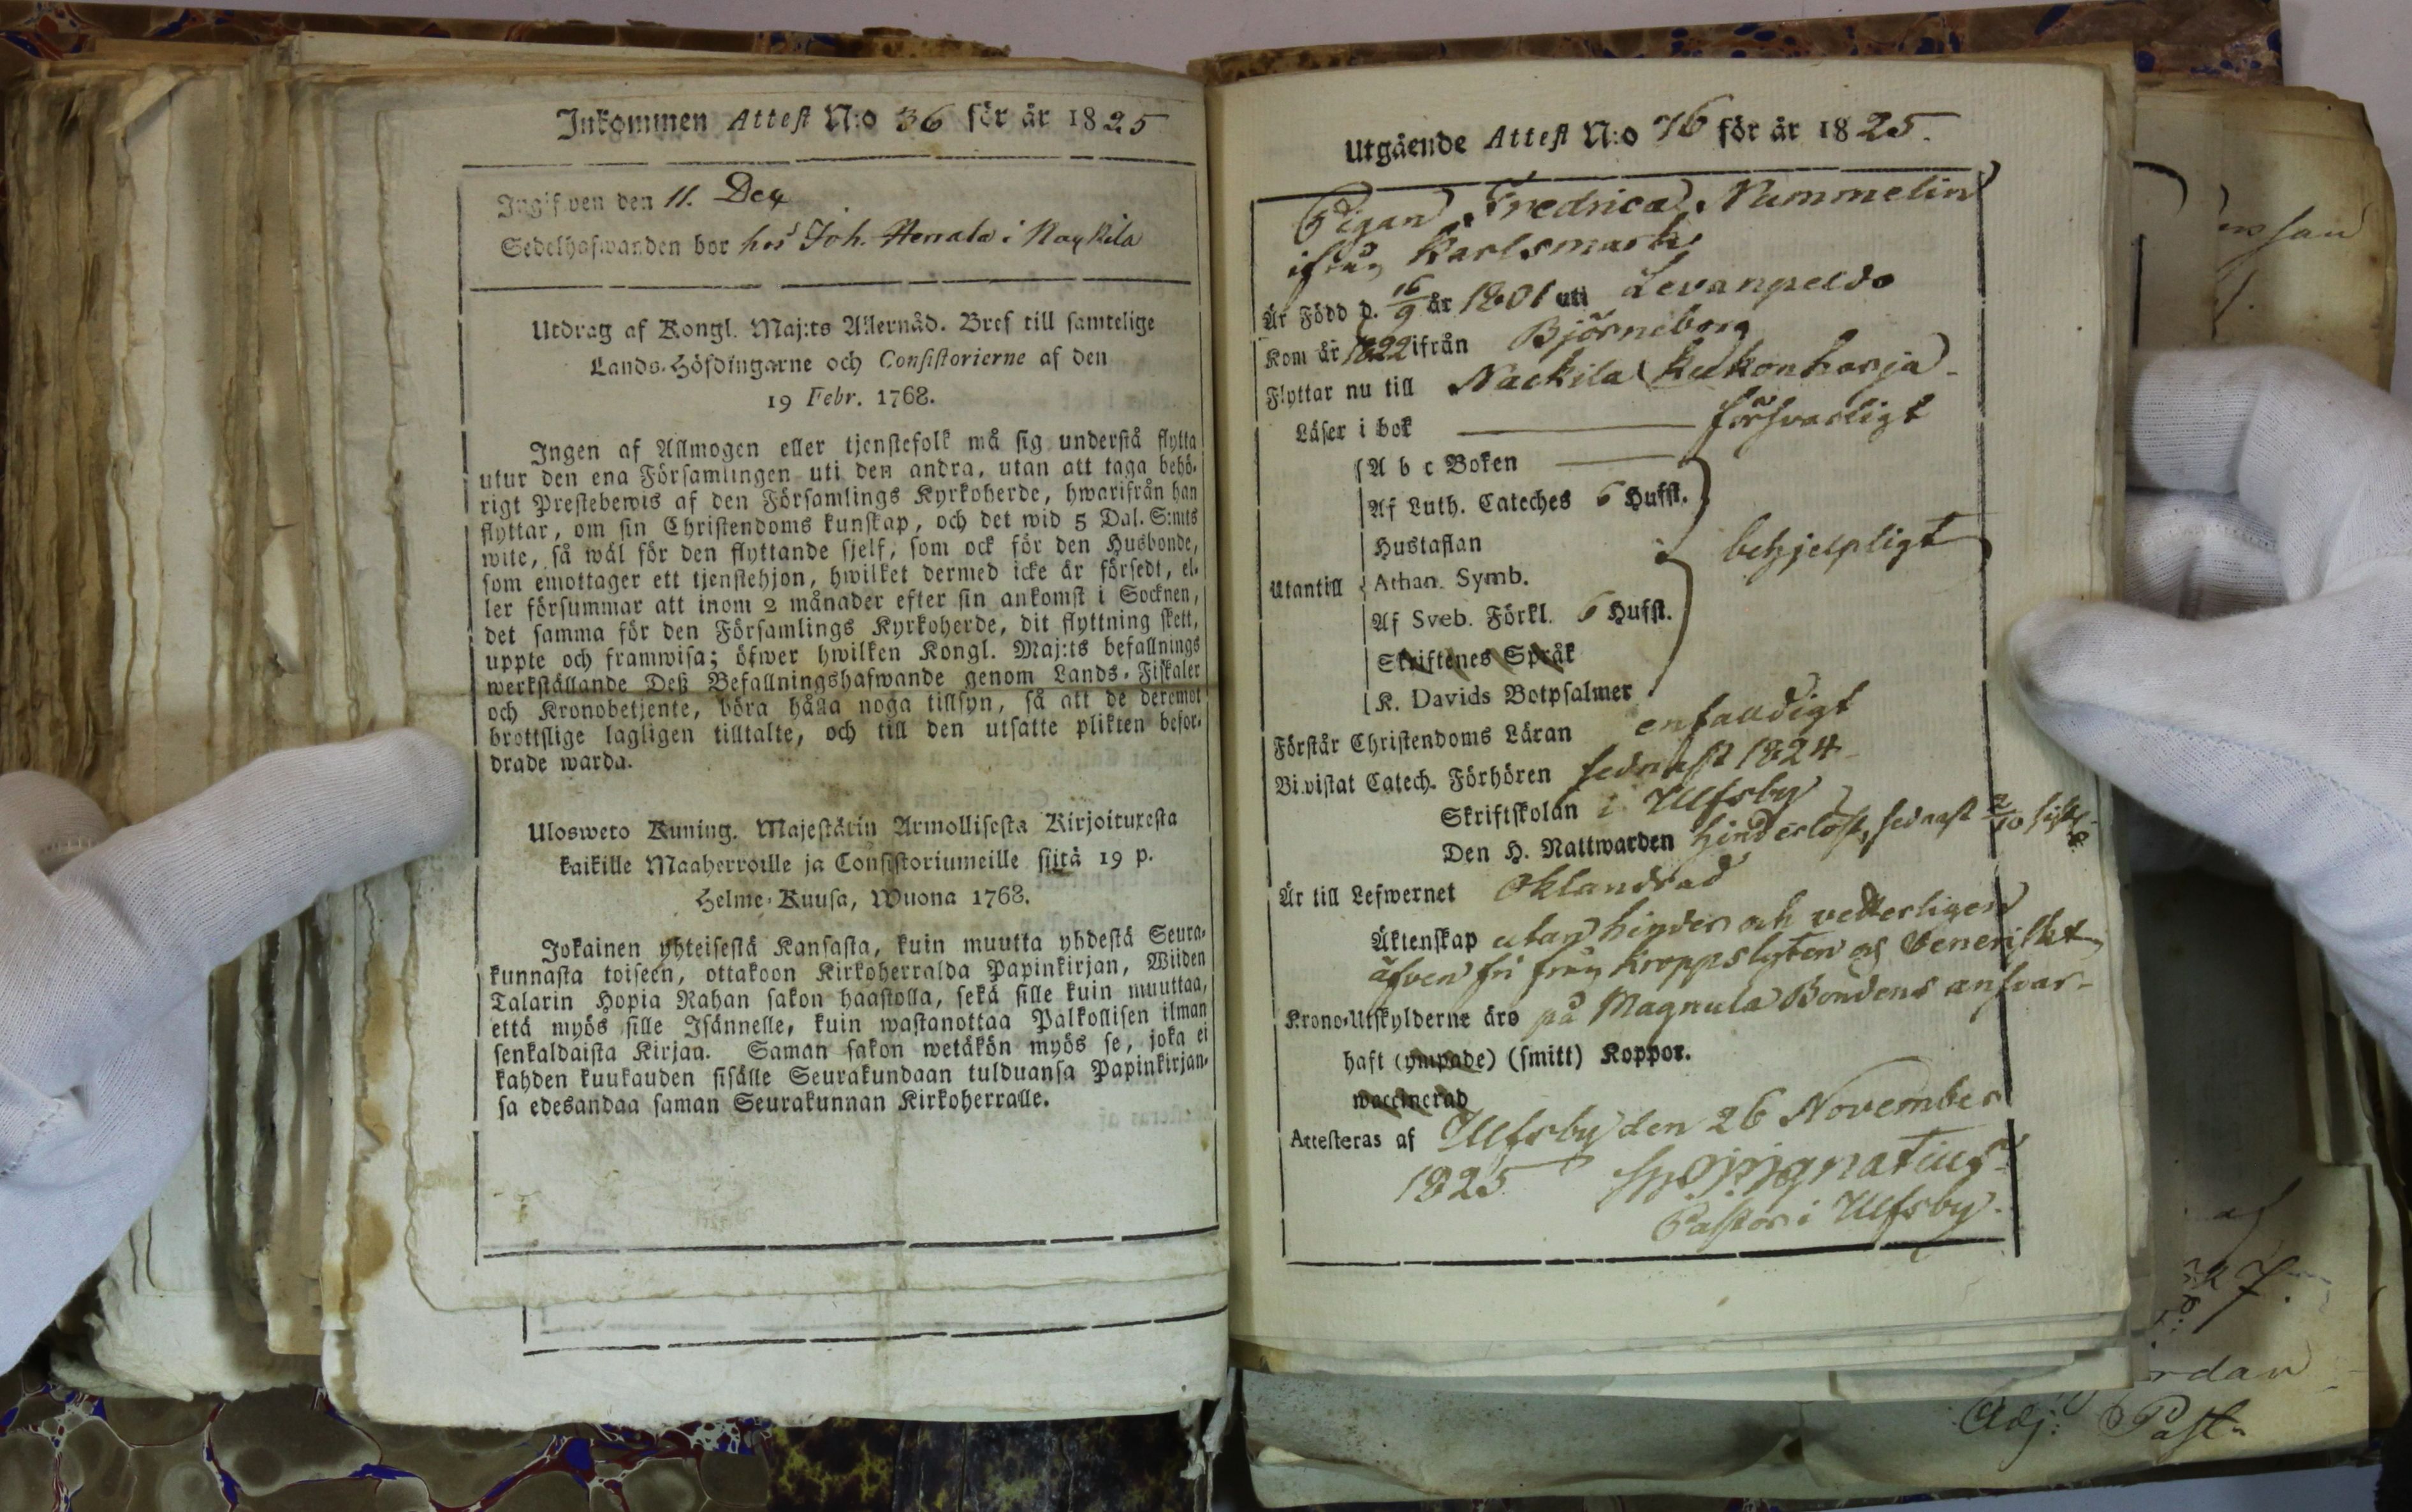 Inkommen Attest N:o 36 för år 1825
Ingifven den 11. Dec
Sedelhafwanden bor hos Joh. Henala i Nackila
Utdrag af Kongl. Maj:ts Allernåd. Bref till samtelige
Lands-Höfdingarne och Consistorierne af den
19 Febr. 1768.
Ingen af Allmogen eller tjenstefolk må sig understå flytta
utur den ena Församlingen uti den andra, utan att taga behö-
rigt Prestebewis af den Församlings Kyrkoherde, hwarifrån han
flyttar, om sin Christendoms kunskap, och det wid 5 Dal. S:mts
wite, så wäl för den flyttande sjelf, som ock för den Husbonde,
som emottager ett tjenstehjon, hwilket dermed icke är försedt, el-
ler försummar att inom 2 månader efter sin ankomst i Socknen,
det samma för den Församlings Kyrkoherde, dit flyttning skett,
uppte och framwisa; öfwer hwilken Kongl. Maj:ts befallnings
werkställande Deß Befallningshafwande genom Lands-Fiskaler
och Kronobetjente, böra hålla noga tillsyn, så att de deremot
brottslige lagligen tilltalte, och till den utsatte plikten befor-
drade warda.
Ulosweto Kuning. Majestätin Armollisesta Kirjoituxesta
kaikille Maaherroille ja Consistoriumeille siitä 19 p.
Helme-Kuusa, Wuona 1768.
Jokainen yhteisestä Kansasta, kuin muutta yhdestä Seura-
kunnasta toiseen, ottakoon Kirkoherralda Papinkirjan, Wiiden
Talarin Hopia Rahan sakon haastolla, sekä sille kuin muuttaa,
että myös sille Isännelle, kuin wastanottaa Palkollisen ilman
senkaldaista Kirjan. Saman sakon wetäkön myös se, joka ei
kahden kuukauden sisälle Seurakundaan tulduansa Papinkirjan-
sa edesandaa saman Seurakunnan Kirkoherralle.
Utgående Attest N:o 76 för år 1825.
Pigan Fredrica Nummelin
ifrån Karlsmark
Är Född d. 16/9 år 1801 uti Levanpeldo
Kom år 1822 ifrån Björneborg
Flyttar nu till Nackila Kukonharja
Läser i bok försvarligt
A b c Boken
Af Luth. Cateches 6 Hufst.
Hustaflan
behjelpligt
Utantill Athan. Symb.
Af Sveb. Förkl. 6 Hufst.
Skriftenes Språk
K. Davids Botpsalmer
Förstår Christendoms Läran enfaldigt
Biwistat Catech. Förhören sednast 1824
Skriftskolan i Ulfsby
Den H. Nattwarden hinderlöst, sednast 2/10 sistl.
Är till Lefwernet oklandrad
Äktenskap utan hinder och vetterligen
äfven fri från kroppslyten och Veneriskt
Krono-Utskylderne äro på Magnula Bondens ansvar
haft (ympade) (smitt) Koppor.
waccinerad
Attesteras af Ulfsby den 26 November
1825 Ignatius
Pastor i Ulfsby.
Adj: Past.